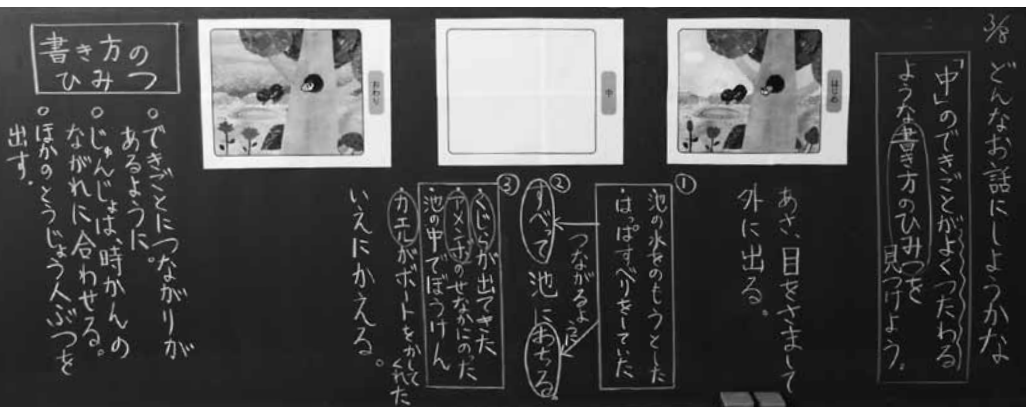 3/8
どんなお話にしようかな
「中」のできごとがよくつたわる
ような書き方のひみつを
見つけよう。
はじめ
あさ、目をさまして
外に出る。
中
①
・池の水をのもうとした
・はっぱすべりをしていた
つながるように
②
すべって池におちる。
③
・くじらが出てきた
・アメンボのせなかにのった
・池の中でぼうけん
・カエルがボートをかしてくれた
おわり
いえにかえる。
書き方の
ひみつ
○できごとにつながりが
あるように。
○じゅんじょは、時かんの
ながれに合わせる。
○ほかのとうじょう人ぶつを
出す。